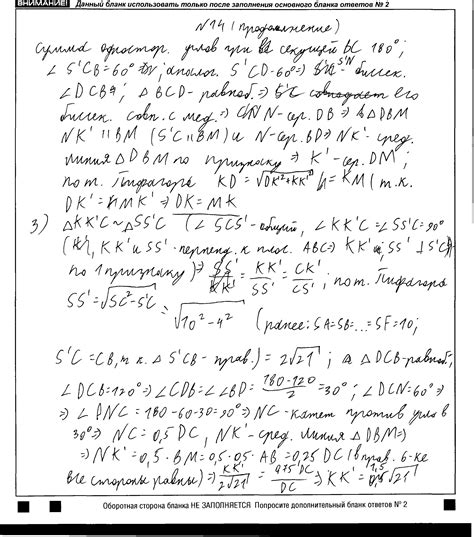 ВНИМАНИЕ! Данный бланк использовать только после заполнения основного бланка ответов № 2
N14 (продолжение)
сумма одностор. углов при секущей BC 180°;
∠S'CB=60° аналог. S'CD=60°⇒ S'N - биссек.
∠DCB; △BCD - равноб.⇒ его
биссек. совп. с мед.⇒ N - сер. DB ⇒ в △DBM
NK' || BM (S'C || BM) и N-сер. BD⇒ NK' - сред.
линия △DBM по признаку ⇒ K' - сер. DM;
по т. Пифагора KD = √DK'²+KK'² = KM (т.к.
DK' = MK' ⇒ DK = MK
3) △KK'C ~ △SS'C (∠SCS' - общий, ∠KK'C = ∠SS'C = 90°
(KK' и SS' - перпенд. к плос. ABC⇒ KK' и SS' ⊥ S'C)
по 1 признаку)⇒ KK'/SS' = CK'/CS'; по т. Пифагора
SS' = √SC²-S'C² = √10²-4² (ранее: SA=SB=...=SF=10;
S'C = CB, т.к. △S'CB - прав.) = 2√21; △DCB-равноб,
∠DCB=120°⇒ ∠CDB = = 180-120/2 = 30°; ∠DCN = 60°⇒
⇒ ∠DNC = 180-60-30=90°⇒ NC - катет против угла в
30°⇒ NC = 0,5 DC, NK' - сред. линия △DBM⇒
⇒ NK' = 0,5 · BM = 0,5 · 0,5 · AB = 0,25 DC (в прав. 6-ке
все стороны равны)⇒ KK'/2√21 = 0,75 DC/DC ⇒ KK' = 1,5√21
Оборотная сторона бланка НЕ ЗАПОЛНЯЕТСЯ. Попросите дополнительный бланк ответов № 2